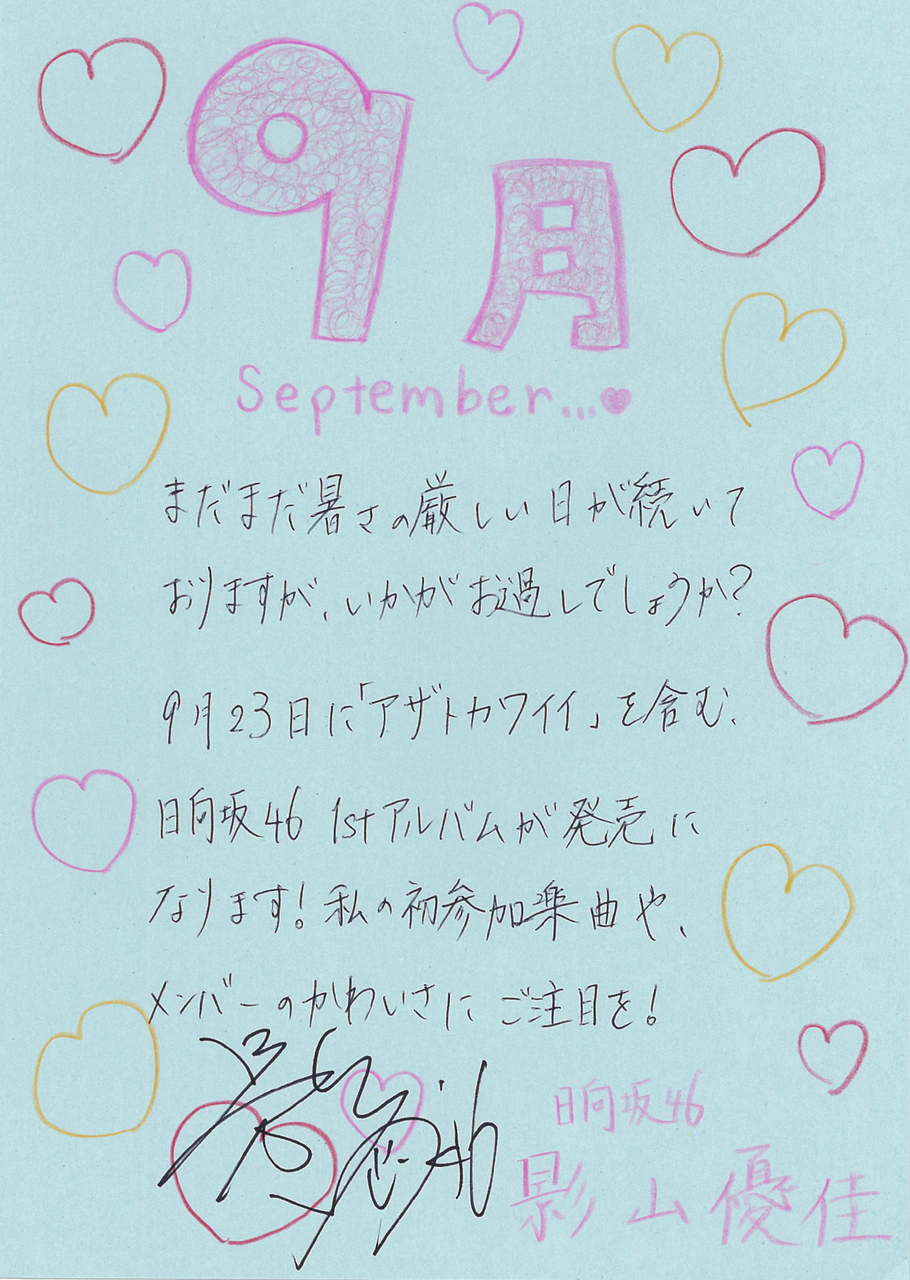 9月
September...♥
まだまだ暑さの厳しい日が続いて
おりますが、いかがお過しでしょうか?
9月23日に「アザトカワイイ」を含む、
日向坂46 1stアルバムが発売に
なります!私の初参加楽曲や、
メンバーのかわいさにご注目を!
日向坂46
影山優佳